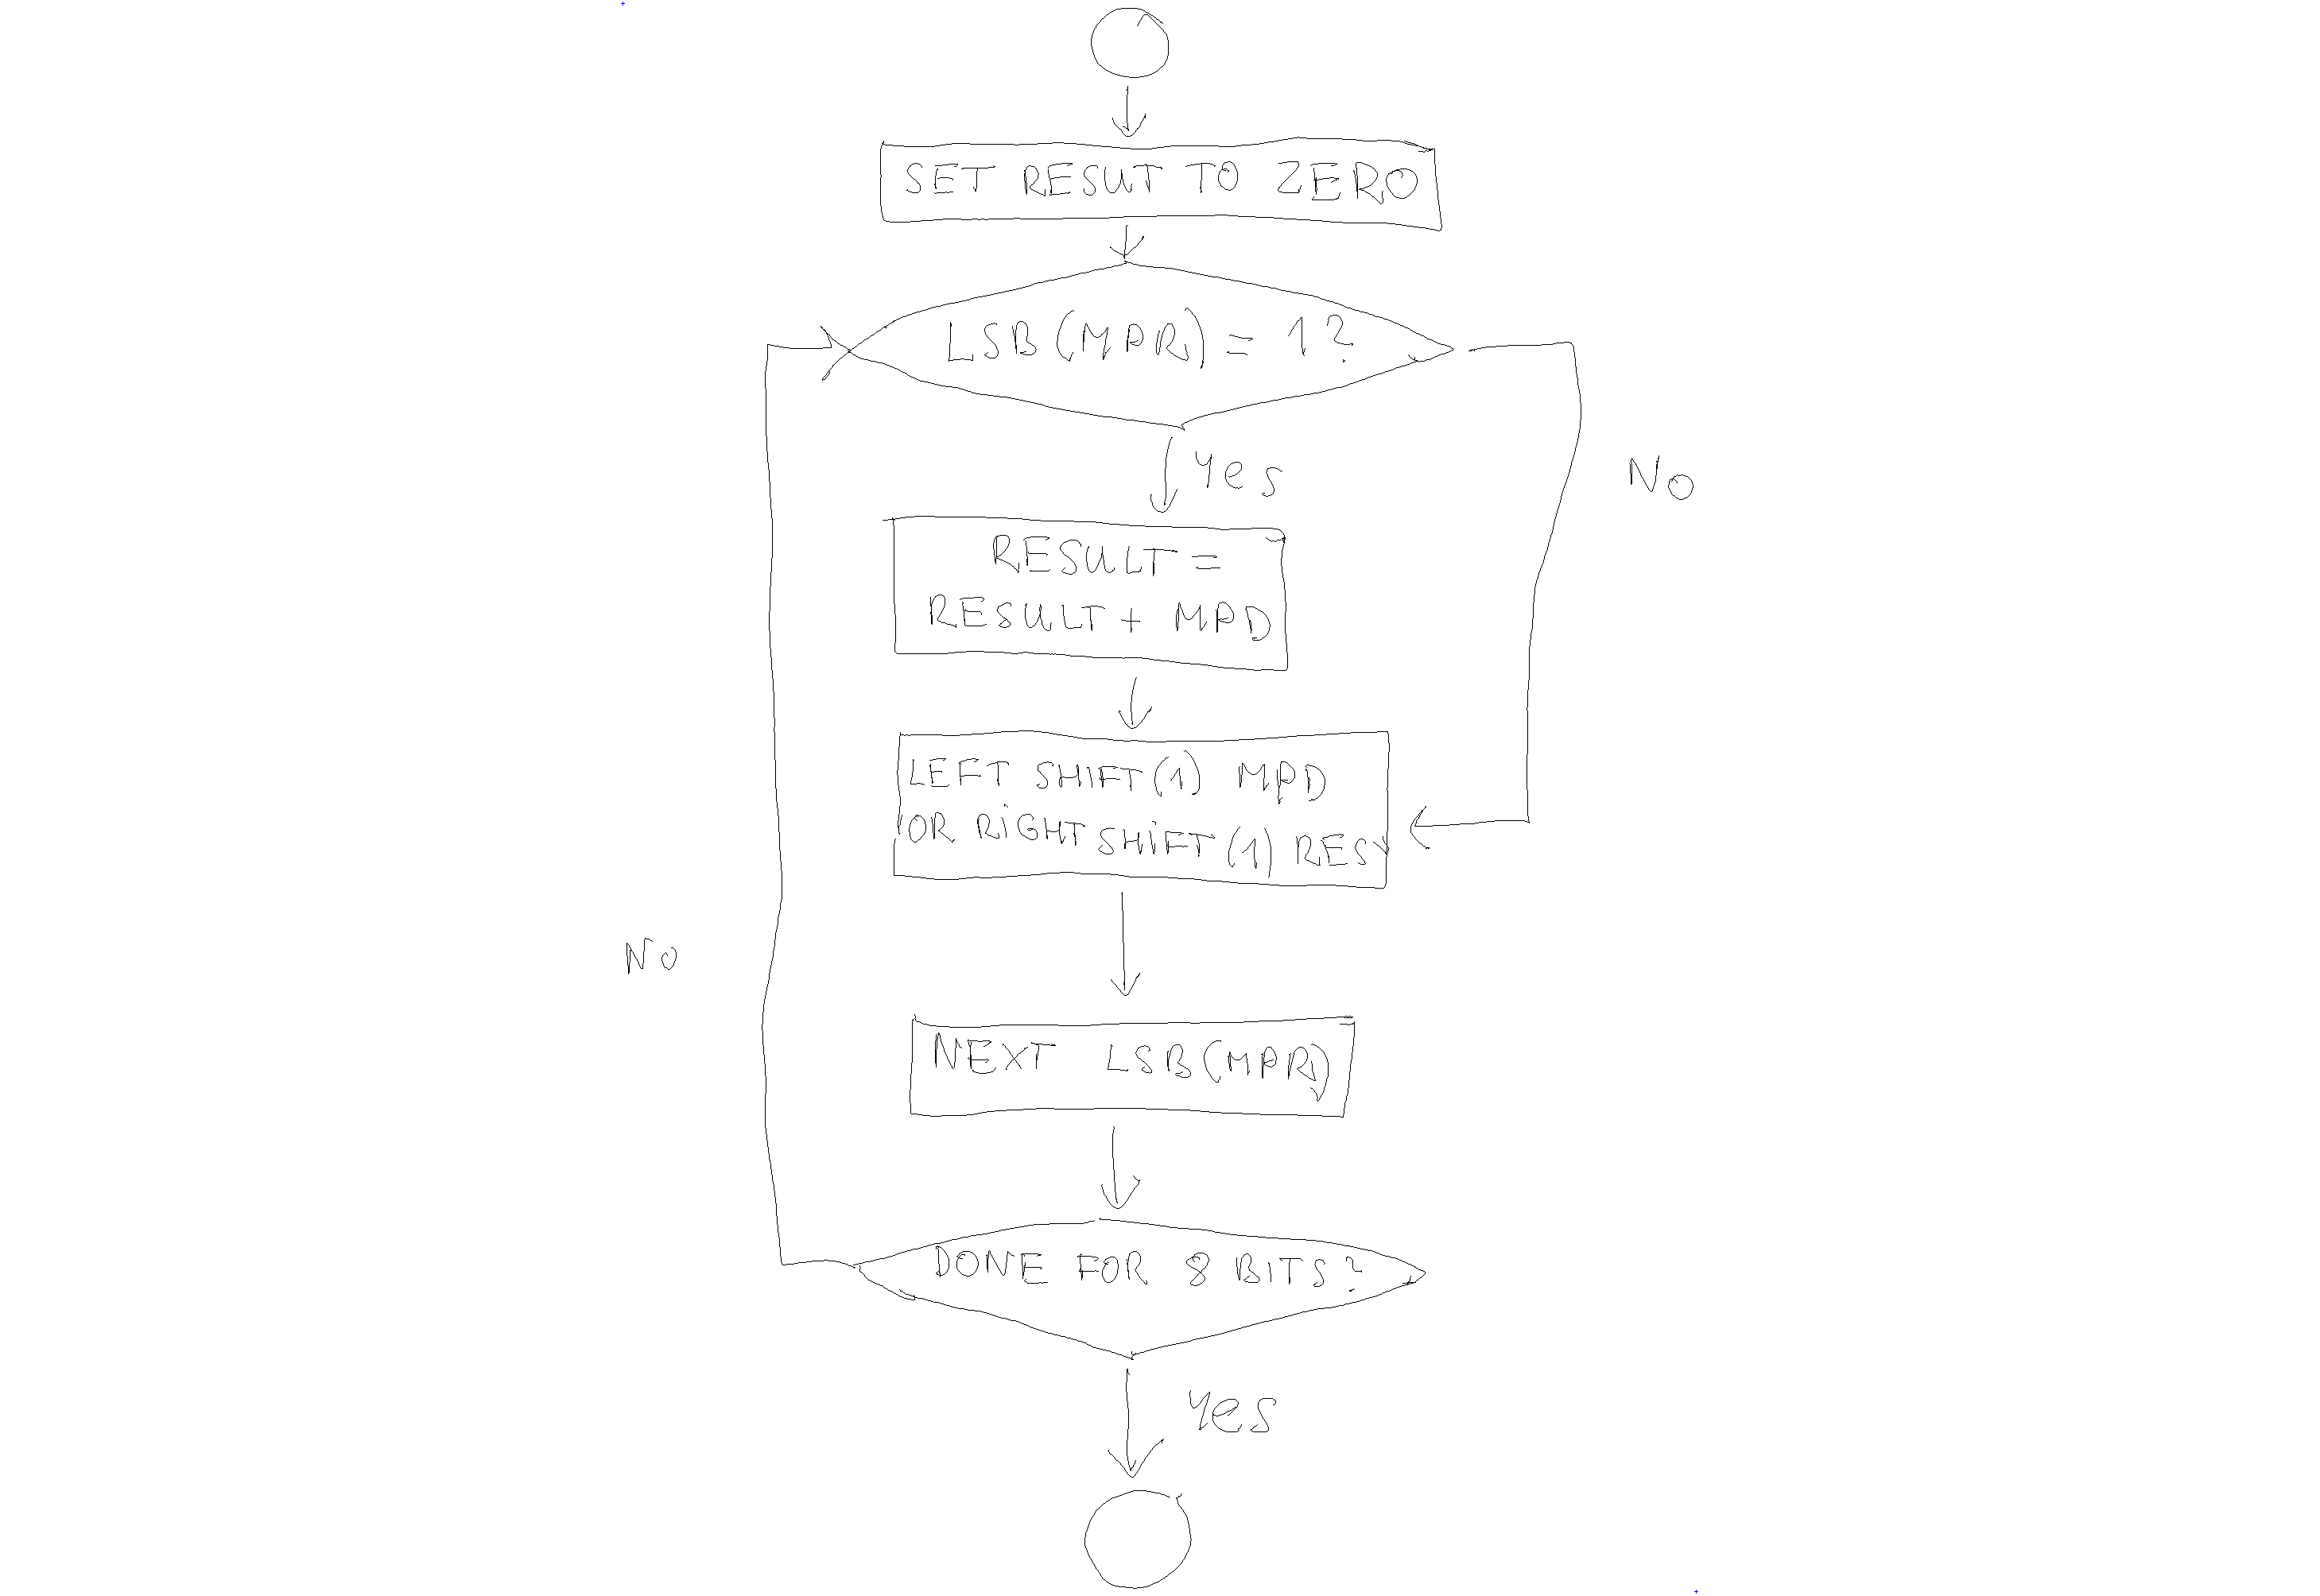 SET RESUT TO ZERO
LSB(MPR) = 1?
Yes
No
RESULT =
RESULT + MPD
LEFT SHIFT(1) MPD
OR RIGHT SHIFT(1) RES
No
NEXT LSB(MPR)
DONE FOR 8 BITS?
Yes